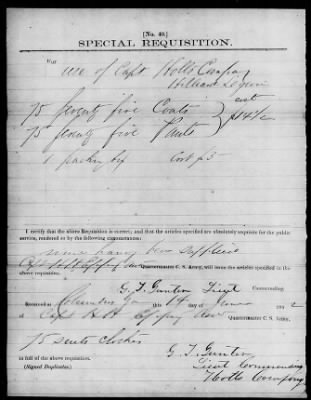 [No. 40.]
SPECIAL REQUISITION.
For
use of Capt Holts Company
Hilliard Legion
75 Seventy five Coats
cost
75 Seventy five Pants
$14½
1 packing box Cost $5
I certify that the above Requisition is correct; and that the articles specified are absolutely requisite for the public
service, rendered so by the following circumstances:
none having been supplied
Quartermaster C. S. Army, will issue the articles specified in the
above requisition.
G. T. Gunter Lieut Commanding
Received at Columbus Ga this 19 of June 2
of Capt Quartermaster C. S. Army,
75 suits clothes
in full of the above requisition.
G. T. Gunter
(Signed Duplicates.)
Lieut Commanding
Holts Company